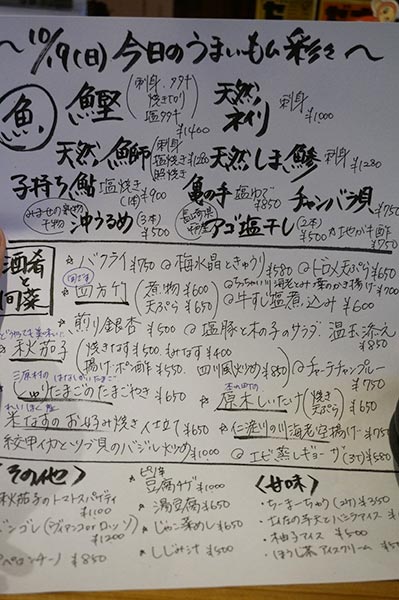 〜10/19(日)今日のうまいもん彩々〜
魚
鰹(刺身・タタキ 焼き切り 塩タタキ)¥1400
天然ネイリ 刺身 ¥1000
天然鰤(刺身 塩焼き 照焼き)¥1280
天然しま鯵 刺身 ¥1280
子持ち鮎 塩焼き(1本)¥900
亀の手 塩ゆで ¥850
チャンバラ貝 ¥750
干物 沖うるめ(3本)¥500
アゴ塩干し(2本)¥500
¥750
酒肴と旬菜
バクライ ¥750
@梅水晶ときゅうり ¥580
@ドロメ天ぷら ¥650
四方竹(煮物 ¥600 天ぷら ¥650)
¥700
@牛すじ塩煮込み ¥600
煎り銀杏 ¥500
@塩豚と木の子のサラダ 温玉添え ¥850
秋茄子(焼きなす ¥500 みそなす ¥400 揚げポン酢 ¥550 四川風炒め ¥850)
@チャーテチャンプルー ¥750
たまごのたまごやき ¥650
原木しいたけ(焼き 天ぷら)¥650
米なすのお好み焼き仕立て ¥650
仁淀川の川海老空揚げ ¥750
紋甲イカとツブ貝のバジル炒め ¥1000
@エビ蒸しギョーザ(3ケ)¥580
その他
秋茄子のトマトスパゲティ ¥1100
ボンゴレ(ヴィアンコorロッソ)¥1200
ペペロンチーノ ¥850
ピリ辛豆腐チゲ ¥1000
湯豆腐 ¥650
じゃこ菜めし ¥650
しじみ汁 ¥500
〈甘味〉
・ちーまーちゅう(2ケ)¥350
・柚子アイス ¥500
・ほうじ茶アイスクリーム